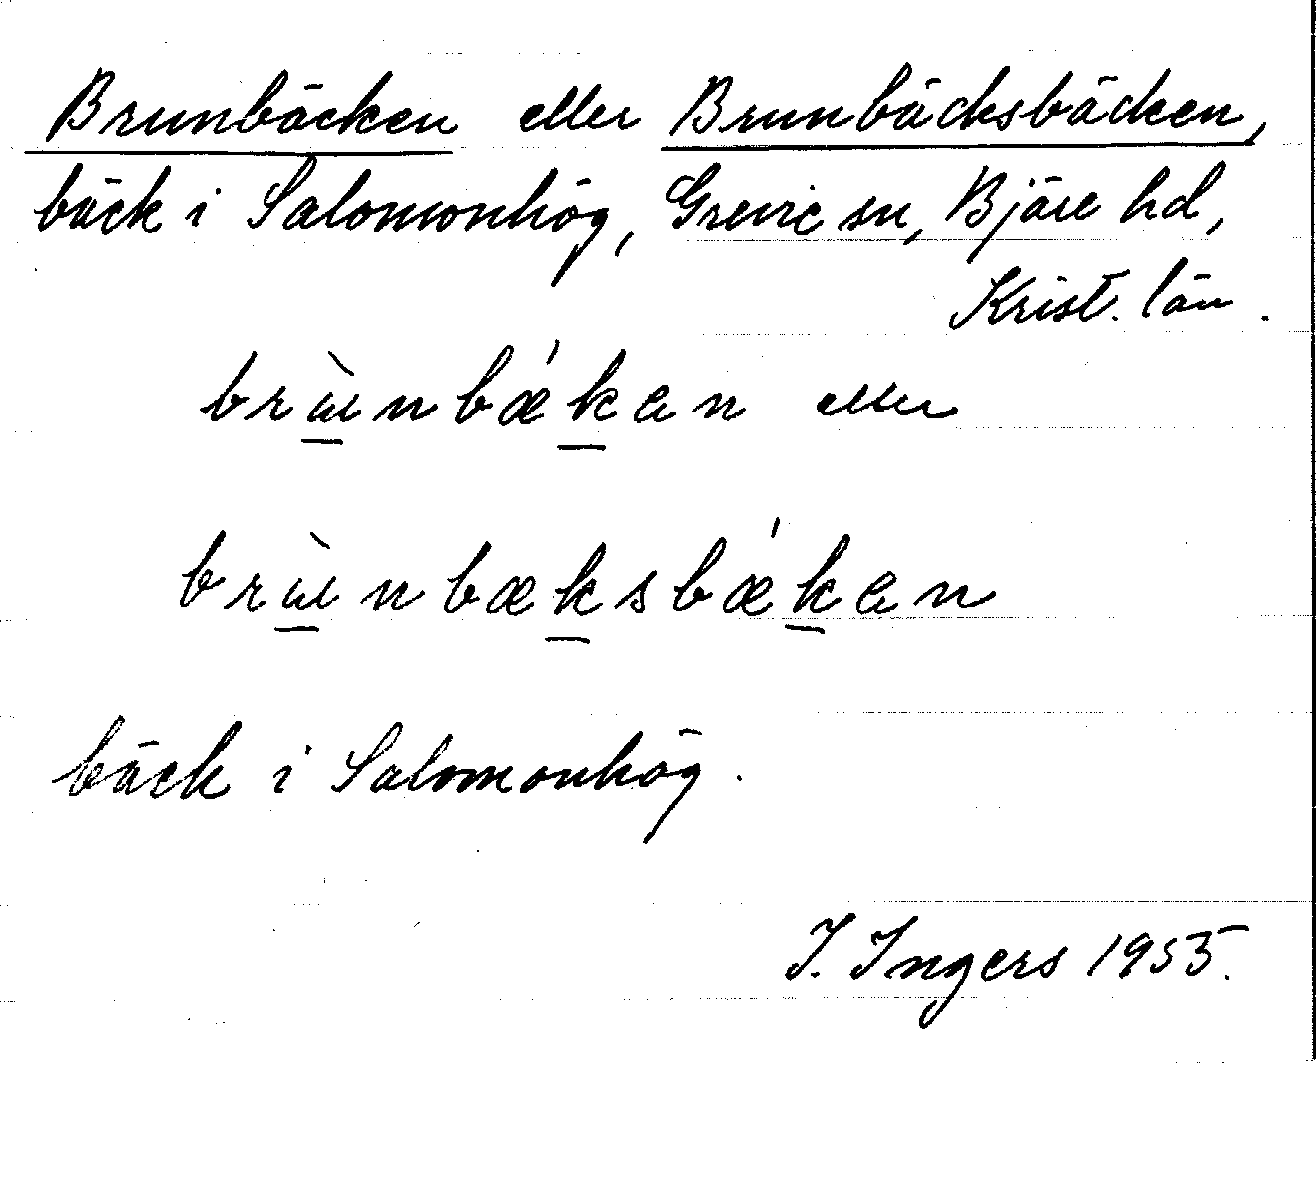 Brunbäcken eller Brunbäcksbäcken,
bäck i Salomonhög, Grevie sn, Bjäre hd,
Krist. län.
brɯ̀nbǽkan eller
brɯ̀nbæksbǽkan
bäck i Salomonhög.
I. Ingers 1955.